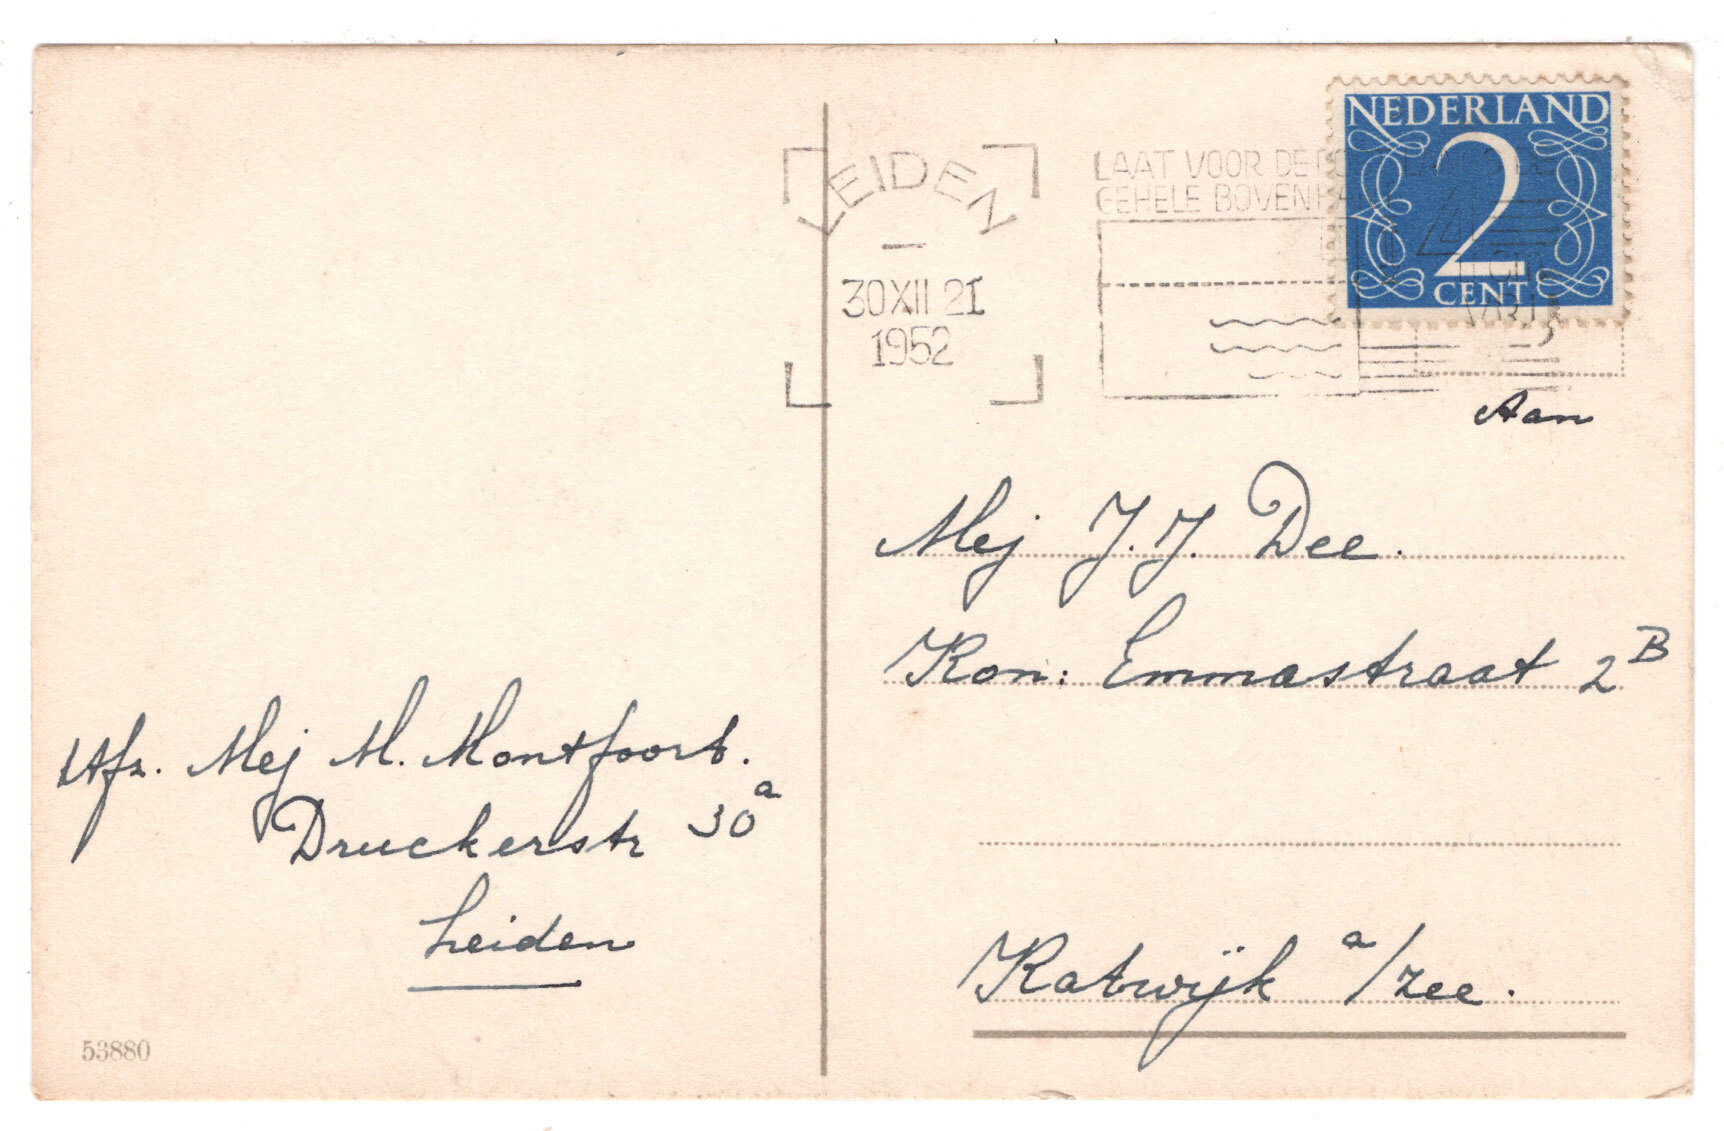 NEDERLAND
2
CENT
LEIDEN
30 XII 21
1952
LAAT VOOR DE
GEHELE
Aan
Mej J. J. Dee.
Kon: Emmastraat 2B
Katwijk a/zee.
Afz. Mej M. Montfoort.
Druckerstr 30a
Leiden
53880